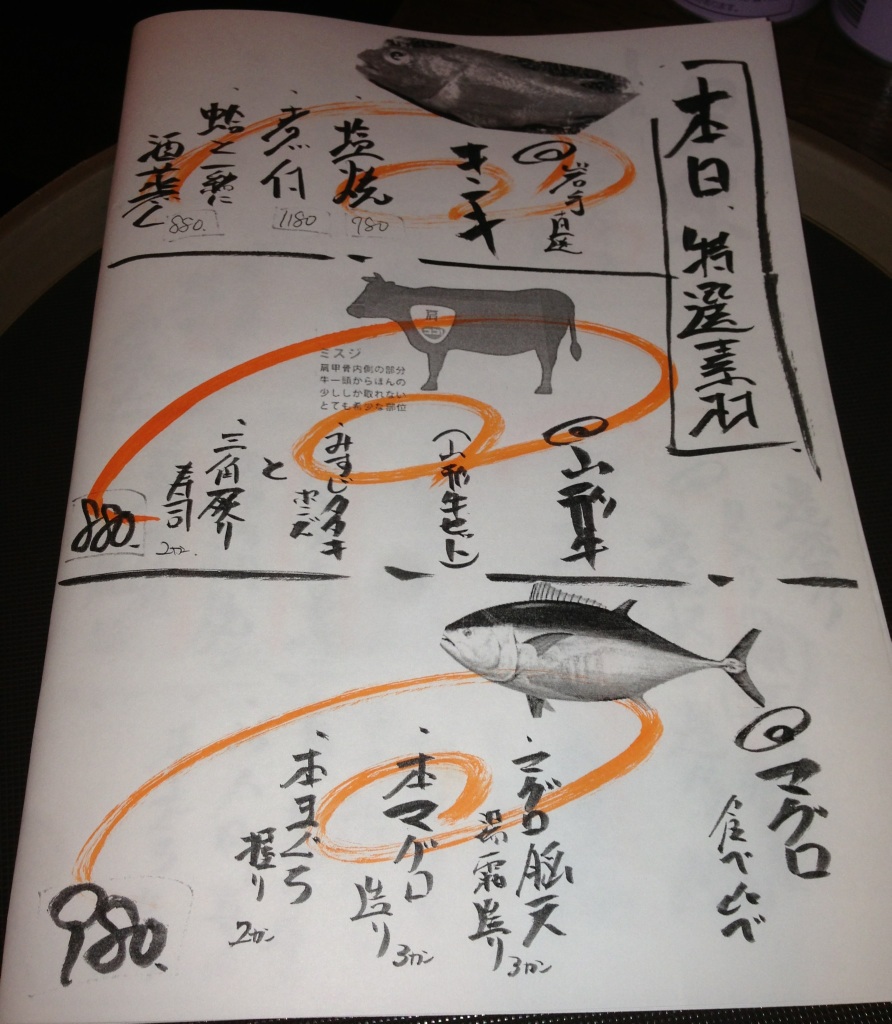 本日、特選素羽
◎岩手直送
キンキ
、塩焼
980
、煮付
1180
、蛤と一緒に
酒蒸し
880.
肩
ミスジ
肩甲骨内側の部分
牛一頭からほんの
少ししか取れない
とても希少な部位
◎山形牛
(山形牛セット)
、みすじタタキ
ポン酢
と
、三角炙り
寿司
2カン.
880.
◎マグロ
食べ比べ
、マグロ脳天
湯霜造り
3カン
、本マグロ
造り
3カン
、本まぐろ
握り
2カン
980.